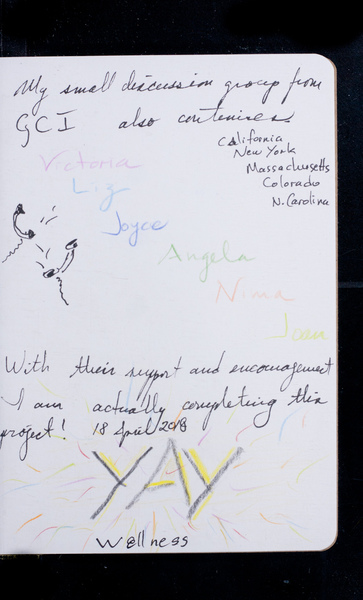 My small discussion group from
GCI also contenises
California
New York
Massachusetts
Colorado
N. Carolina
Victoria
Liz
Joyce
Angela
Nima
Joan
With their support and encouragement
I am actually completing this
project! 18 April 2018
YAY
Wellness